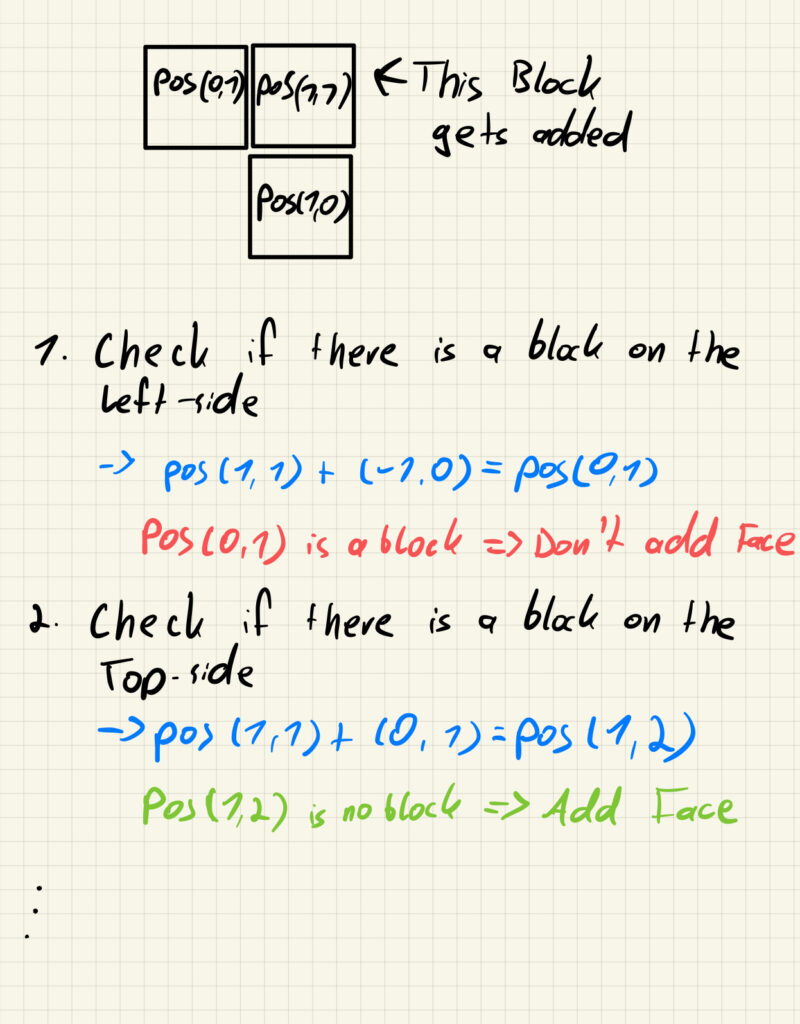 Pos(0,1) Pos(1,1) ← This Block
gets added
Pos(1,0)
1. Check if there is a block on the
Left-side
-> pos(1,1) + (-1,0) = pos(0,1)
Pos(0,1) is a block => Don't add Face
2. Check if there is a block on the
Top-side
-> pos(1,1) + (0,1) = pos(1,2)
Pos(1,2) is no block => Add Face